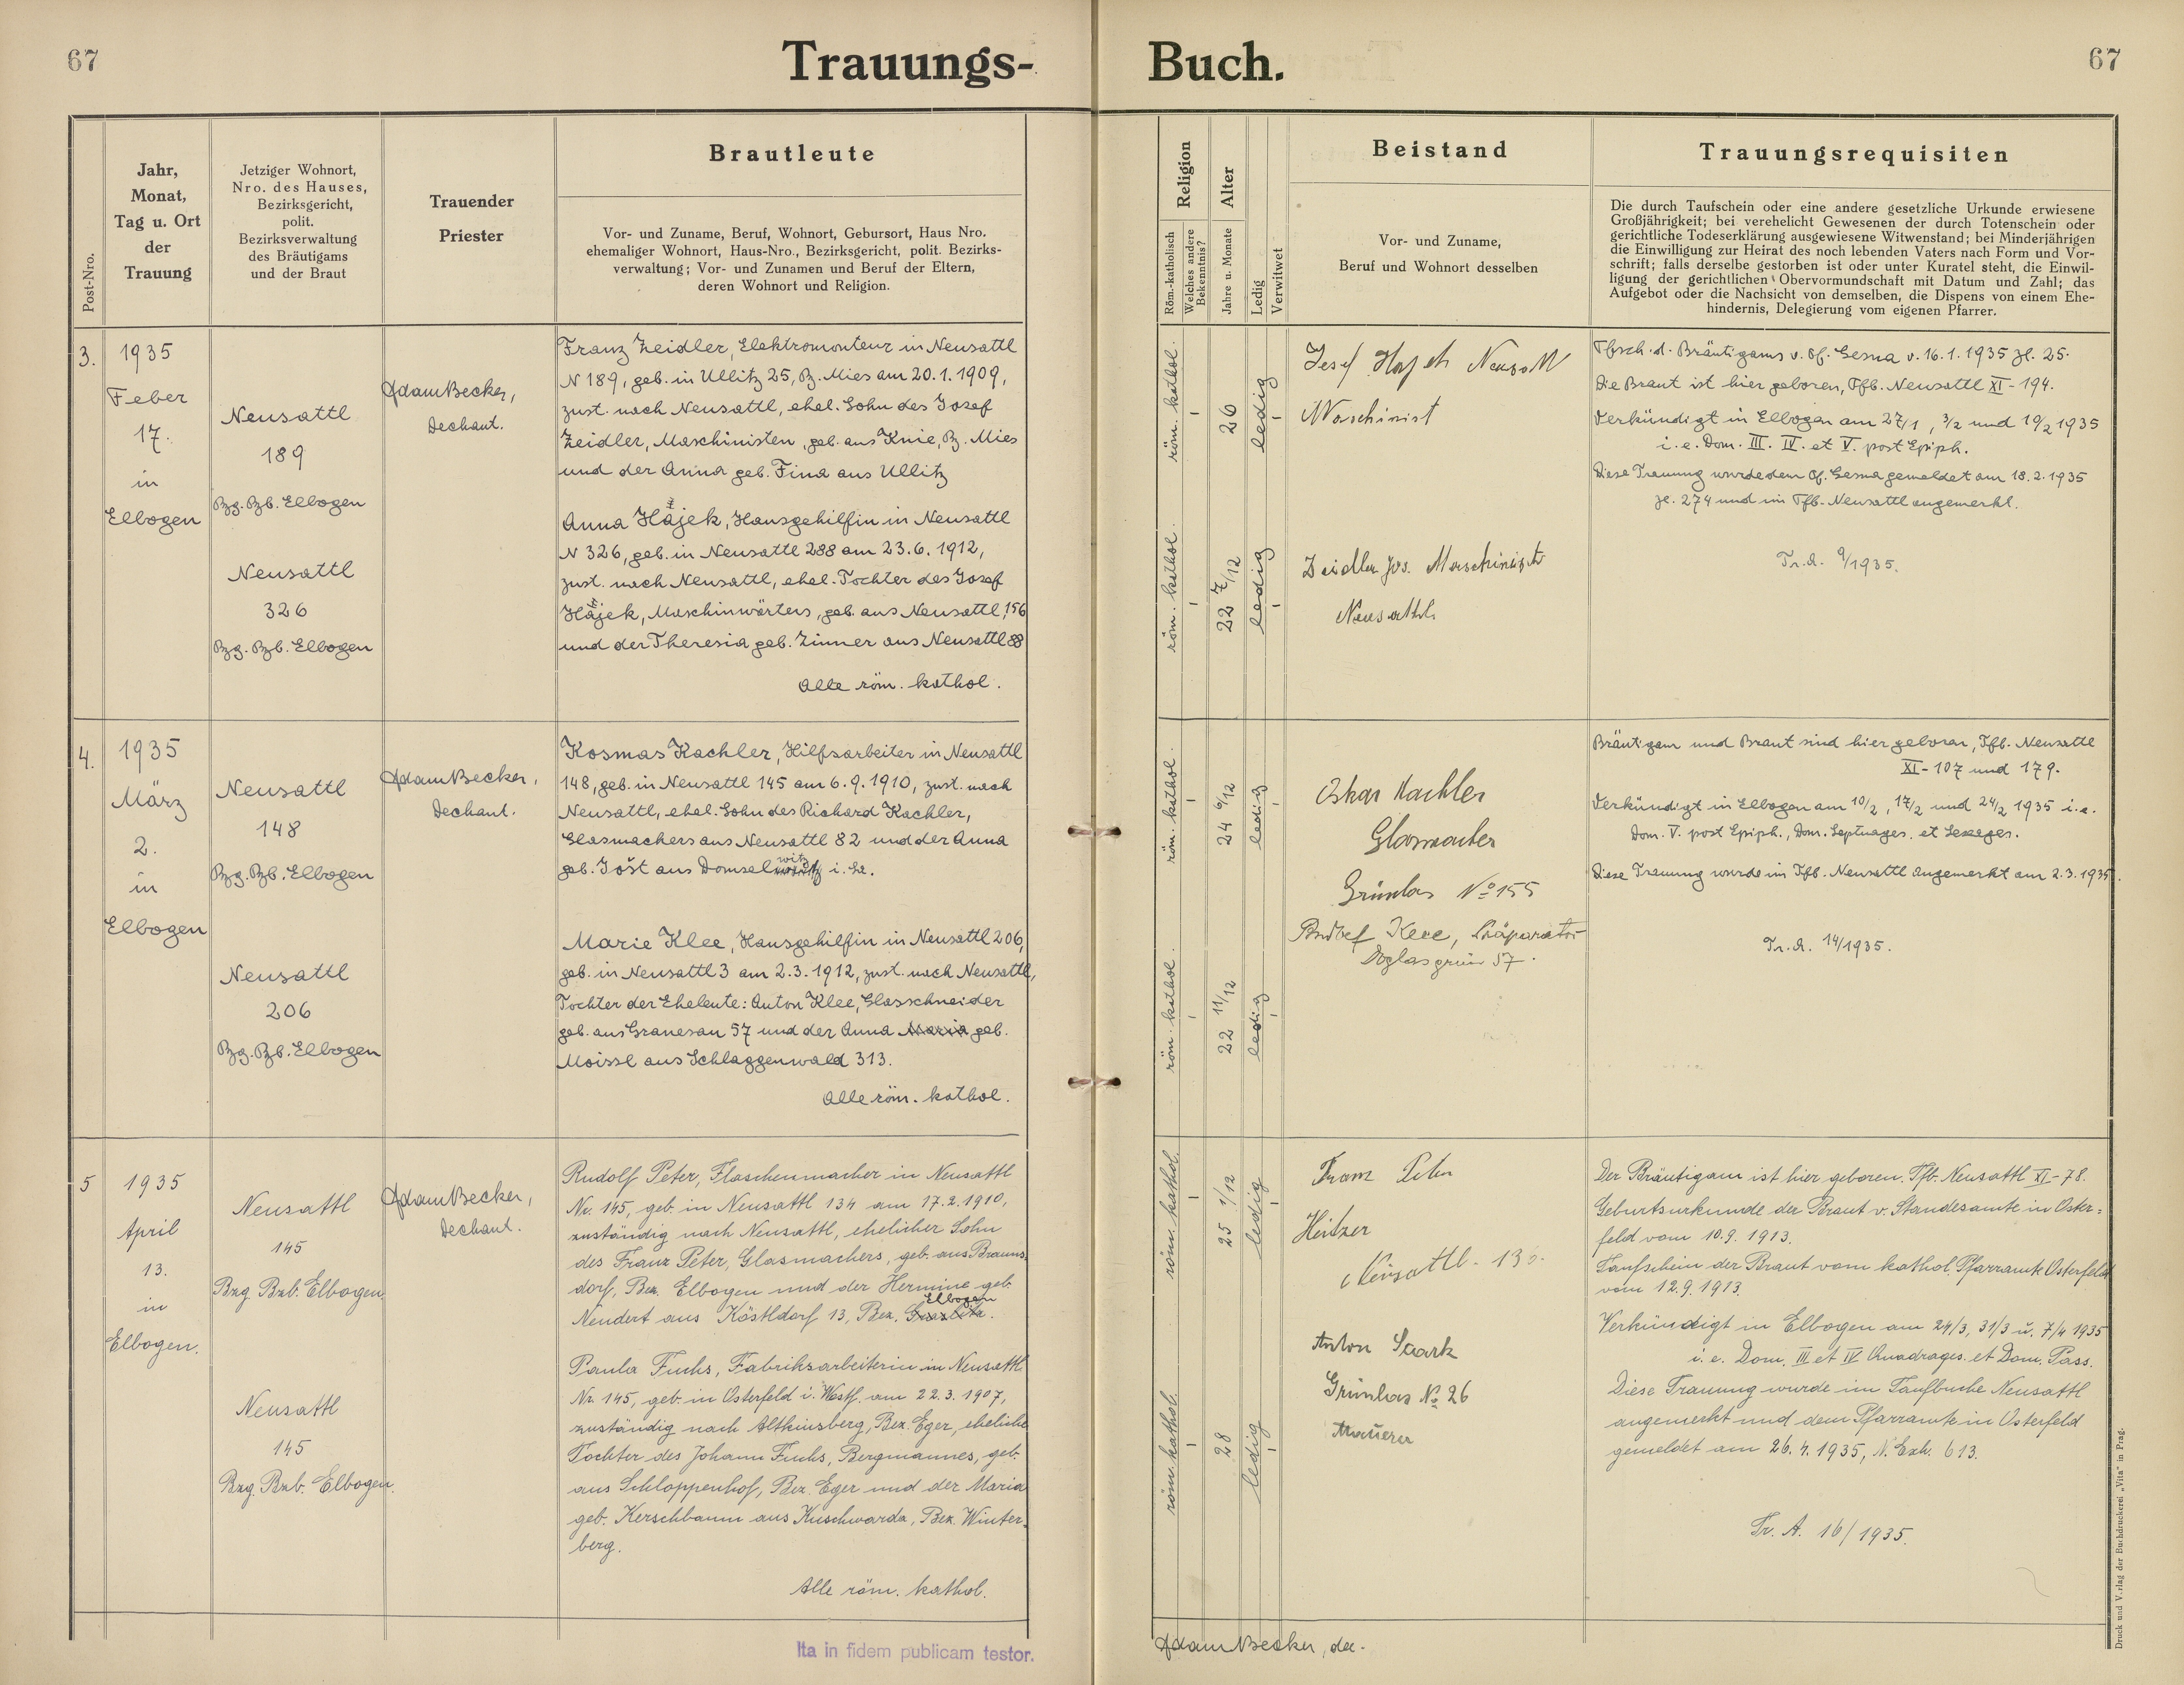 67
Trauungs-
Buch.
67
Post-Nro.
Jahr,
Monat,
Tag u. Ort
der
Trauung
Jetziger Wohnort,
Nro. des Hauses,
Bezirksgericht,
polit.
Bezirksverwaltung
des Bräutigams
und der Braut
Trauender
Priester
Brautleute
Vor- und Zuname, Beruf, Wohnort, Gebursort, Haus Nro.
ehemaliger Wohnort, Haus-Nro., Bezirksgericht, polit. Bezirks-
verwaltung; Vor- und Zunamen und Beruf der Eltern,
deren Wohnort und Religion.
Religion
Röm.-katholisch
Welches andere
Bekenntnis?
Alter
Jahre u. Monate
Ledig
Verwitwet
Beistand
Vor- und Zuname,
Beruf und Wohnort desselben
Trauungsrequisiten
Die durch Taufschein oder eine andere gesetzliche Urkunde erwiesene
Großjährigkeit; bei verehelicht Gewesenen der durch Totenschein oder
gerichtliche Todeserklärung ausgewiesene Witwenstand; bei Minderjährigen
die Einwilligung zur Heirat des noch lebenden Vaters nach Form und Vor-
schrift; falls derselbe gestorben ist oder unter Kuratel steht, die Einwil-
ligung der gerichtlichen Obervormundschaft mit Datum und Zahl; das
Aufgebot oder die Nachsicht von demselben, die Dispens von einem Ehe-
hindernis, Delegierung vom eigenen Pfarrer.
3.
1935
Feber
17.
in
Elbogen
Neusattl
189
Bzg. Bzb. Elbogen
Neusattl
326
Bzg. Bzb. Elbogen
Adam Becker,
Dechant.
Franz Zeidler, Elektromonteur in Neusattl
N 189, geb. in Ullitz 25, Bz. Mies am 20.1.1909,
zust. nach Neusattl, ehel. Sohn des Josef
Zeidler, Maschinisten, geb. aus Knie, Bz. Mies
und der Anna geb. Fina aus Ullitz
Anna Hájek, Hausgehilfin in Neusattl
N 326, geb. in Neusattl 288 am 23.6.1912,
zust. nach Neusattl, ehel. Tochter des Josef
Hájek, Maschinwärters, geb. aus Neusattl, 156
und der Theresia geb. Zinner aus Neusattl 88
Alle röm. kathol.
röm. kathol.
26
ledig
röm. kathol.
22 7/12
ledig
Josef Hajek Neusattl
Maschinist
Zeidler Jos. Maschinist
Neusattl
Tfsch. d. Bräutigams v. Pf. Gesna v. 16.1.1935 Zl. 25.
Die Braut ist hier geboren, Tfb. Neusattl XI-194.
Verkündigt in Elbogen am 27/1, 3/2 und 10/2 1935
i.e. Dom. III. IV. et V. post Epiph.
Diese Trauung wurde dem Pf. Gesna gemeldet am 18.2.1935
Zl. 274 und im Tfb. Neusattl angemerkt.
Tr. A. 9/1935.
4.
1935
März
2.
in
Elbogen
Neusattl
148
Bzg. Bzb. Elbogen
Neusattl
206
Bzg. Bzb. Elbogen
Adam Becker,
Dechant.
Kosmas Kachler, Hilfsarbeiter in Neusattl
148, geb. in Neusattl 145 am 6.9.1910, zust. nach
Neusattl, ehel. Sohn des Richard Kachler,
Glasmachers aus Neusattl 82 und der Anna
geb. Jošt aus Domselwitz
Marie Klee, Hausgehilfin in Neusattl 206,
geb. in Neusattl 3 am 2.3.1912, zust. nach Neusattl,
Tochter der Eheleute: Anton Klee, Glasschneider
geb. aus Granesau 57 und der Anna Maria geb.
Moissl aus Schlaggenwald 313.
Alle röm. kathol.
röm. kathol.
24 6/12
ledig
röm. kathol.
22 11/12
ledig
Oskar Kachler
Glasmacher
Grünlas No 155
Rudolf Klee, Präparator
Doglasgrün 57.
Bräutigam und Braut sind hier geboren, Tfb. Neusattl
XI-107 und 179.
Verkündigt in Elbogen am 10/2, 17/2 und 24/2 1935 i.e.
Dom. V. post Epiph., Dom. Septuages. et Sexages.
Diese Trauung wurde im Tfb. Neusattl angemerkt am 2.3.1935.
Tr. A. 14/1935.
5
1935
April
13.
in
Elbogen.
Neusattl
145
Bzg Bzb. Elbogen
Neusattl
145
Bzg. Bzb. Elbogen.
Adam Becker,
Dechant.
Rudolf Peter, Flaschenmacher in Neusattl
Nr. 145, geb. in Neusattl 134 am 17.2.1910,
zuständig nach Neusattl, ehelicher Sohn
des Franz Peter, Glasmachers, geb. aus Brauns
dorf, Bez. Elbogen und der Hermine geb.
Neudert aus Köstldorf 13, Bez. Elbogen
Paula Fuchs, Fabriksarbeiterin in Neusattl
Nr. 145, geb. in Osterfeld i. Westf. am 22.3.1907,
zuständig nach Altkinsberg, Bez. Eger, eheliche
Tochter des Johann Fuchs, Bergmannes, geb.
aus Schloppenhof, Bez. Eger und der Maria
geb. Kerschbaum aus Kuschwarda, Bez. Winter-
berg.
Alle röm. kathol.
röm. kathol.
25 1/12
ledig
röm. kathol.
28
ledig
Franz Peter
Heitzer
Neusattl.
Anton Saark
Grünlas No 26
Maurer
Der Bräutigam ist hier geboren. Tfb. Neusattl XI-78.
Geburtsurkunde der Braut v. Standesamte in Oster=
feld vom 10.9.1913.
Taufschein der Braut vom kathol. Pfarramte Osterfeld
vom 12.9.1913.
Verkündigt in Elbogen am 24/3, 31/3 u. 7/4 1935
i.e. Dom. III et IV Quadrages. et Dom. Pass.
Diese Trauung wurde im Taufbuche Neusattl
angemerkt und dem Pfarramte in Osterfeld
gemeldet am 26.4.1935, N. Exh. 613.
Tr. A. 16/1935.
Ita in fidem publicam testor.
Adam Becker, de.
Druck und Verlag der Buchdruckerei „Vita“ in Prag.